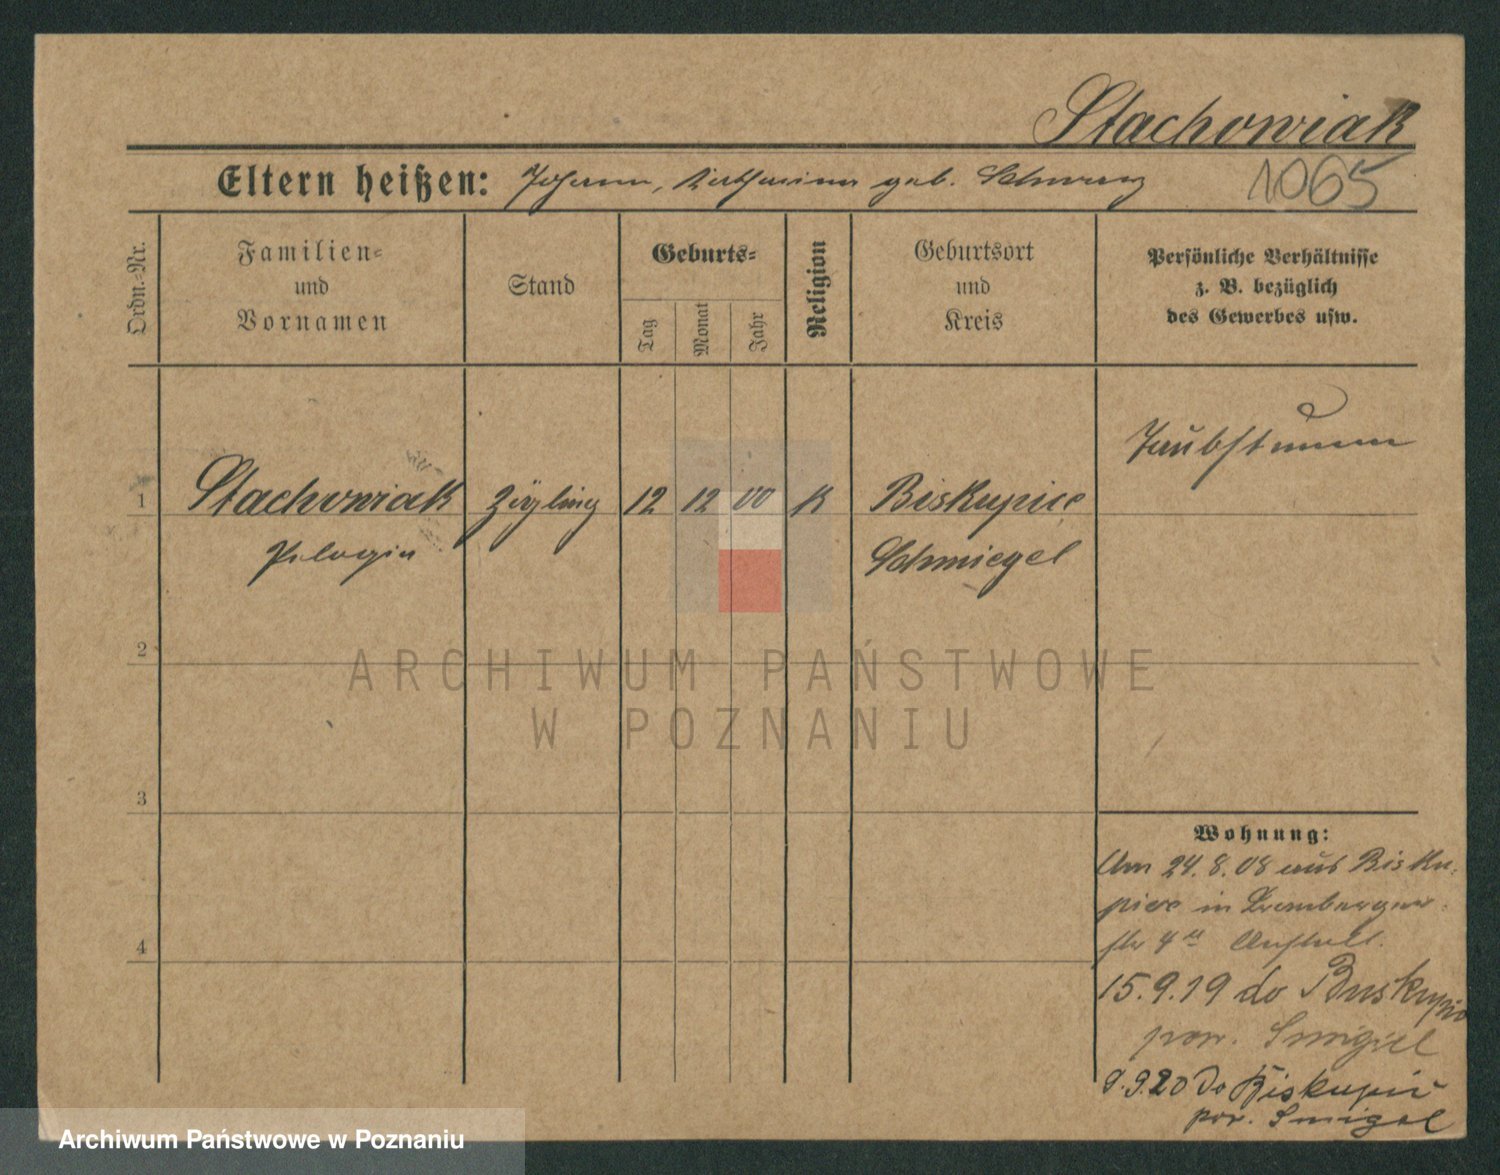 Stachowiak
Eltern heißen: Johann, Katharina geb. Schwarz
1065
Ordn.-Nr.
Familien-
und
Vornamen
Stand
Geburts-
Tag
Monat
Jahr
Religion
Geburtsort
und
Kreis
Persönliche Verhältnisse
z. B. bezüglich
des Gewerbes usw.
Taubstumm
1 Stachowiak Zögling 12 12 00 K Biskupice
Pelagia Schmiegel
2
3
4
ARCHIWUM PAŃSTWOWE
W POZNANIU
Wohnung:
Am 24.8.08 aus Bisku-
pice in Bromberger-
str 4 Anstalt.
15.9.19 do Buskupic
pow. Smigiel
9.9.20 do Biskupic
pow. Smigel
Archiwum Państwowe w Poznaniu